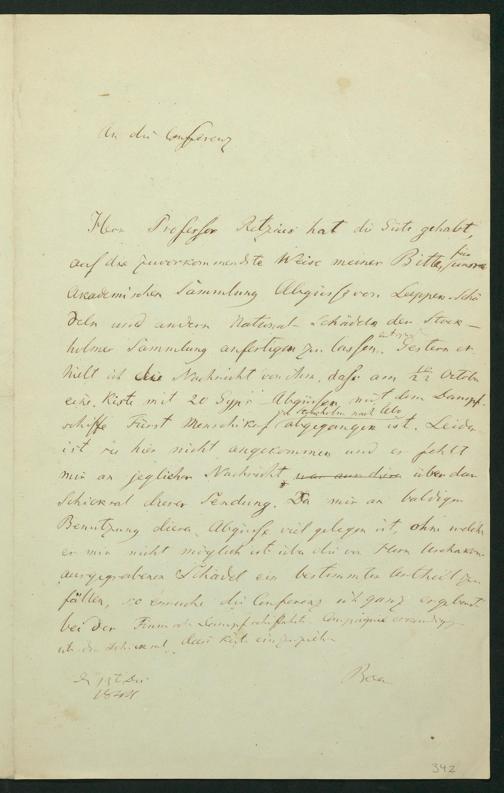 An die Conferenz
Herr Professor Retzius hat die Güte gehabt,
auf die zuvorkommendste Weise meiner Bitte, für unsere
Akademischen Sammlung Abgüsse von Lappen-Schä-
deln und andern National-Schädeln der Stock-
holmer Sammlung anfertigen zu lassen, Gestern er-
hielt ich die Nachricht von ihm, dass am Octobr
eine Kiste mit 20 Gyps-Abgüssen mit dem Dampf-
schiffe Fürst Menschikof zu Stockholm nach Abo abgegangen ist. Leider
ist sie hier nicht angekommen und es fehlt
mir an jeglicher Nachricht über das
Schicksal dieser Sendung. Da mir an baldiger
Benutzung dieser Abgüsse viel gelegen ist, ohne welche
es mir nicht möglich ist über die von Herrn
ausgegrabenen Schädel ein bestimmtes Urtheil zu
fällen, so ersuche die Conferenz ich ganz ergebenst
bei der Dampfschiffahrts Compagnie
das Schicksal der Kiste einzuziehen
Baer
342